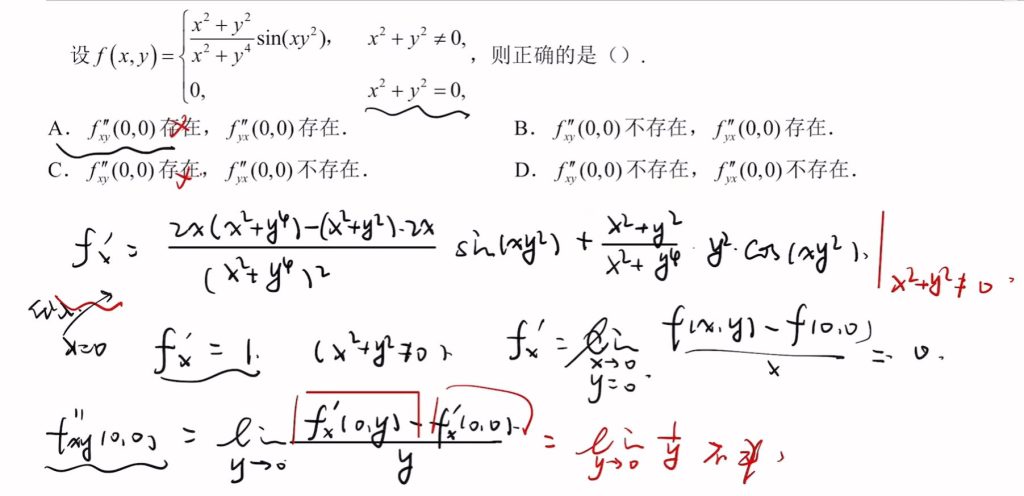 设 f(x,y) = { (x²+y²)/(x²+y⁴) sin(xy²), x²+y²≠0,
0, x²+y²=0, ,则正确的是().
A. f″xy(0,0)存在,f″yx(0,0)存在.
B. f″xy(0,0)不存在,f″yx(0,0)存在.
C. f″xy(0,0)存在,f″yx(0,0)不存在.
D. f″xy(0,0)不存在,f″yx(0,0)不存在.
f′x = (2x(x²+y⁴)-(x²+y²)·2x)/(x²+y⁴)² sin(xy²) + (x²+y²)/(x²+y⁴) · y²·cos(xy²). | x²+y²≠0.
x=0
f′x = 1. (x²+y²≠0). f′x = lim x→0 y=0. (f(x,y)-f(0,0))/x = 0.
f″xy(0,0) = lim y→0 (f′x(0,y)-f′x(0,0).)/y = lim y→0 1/y 不